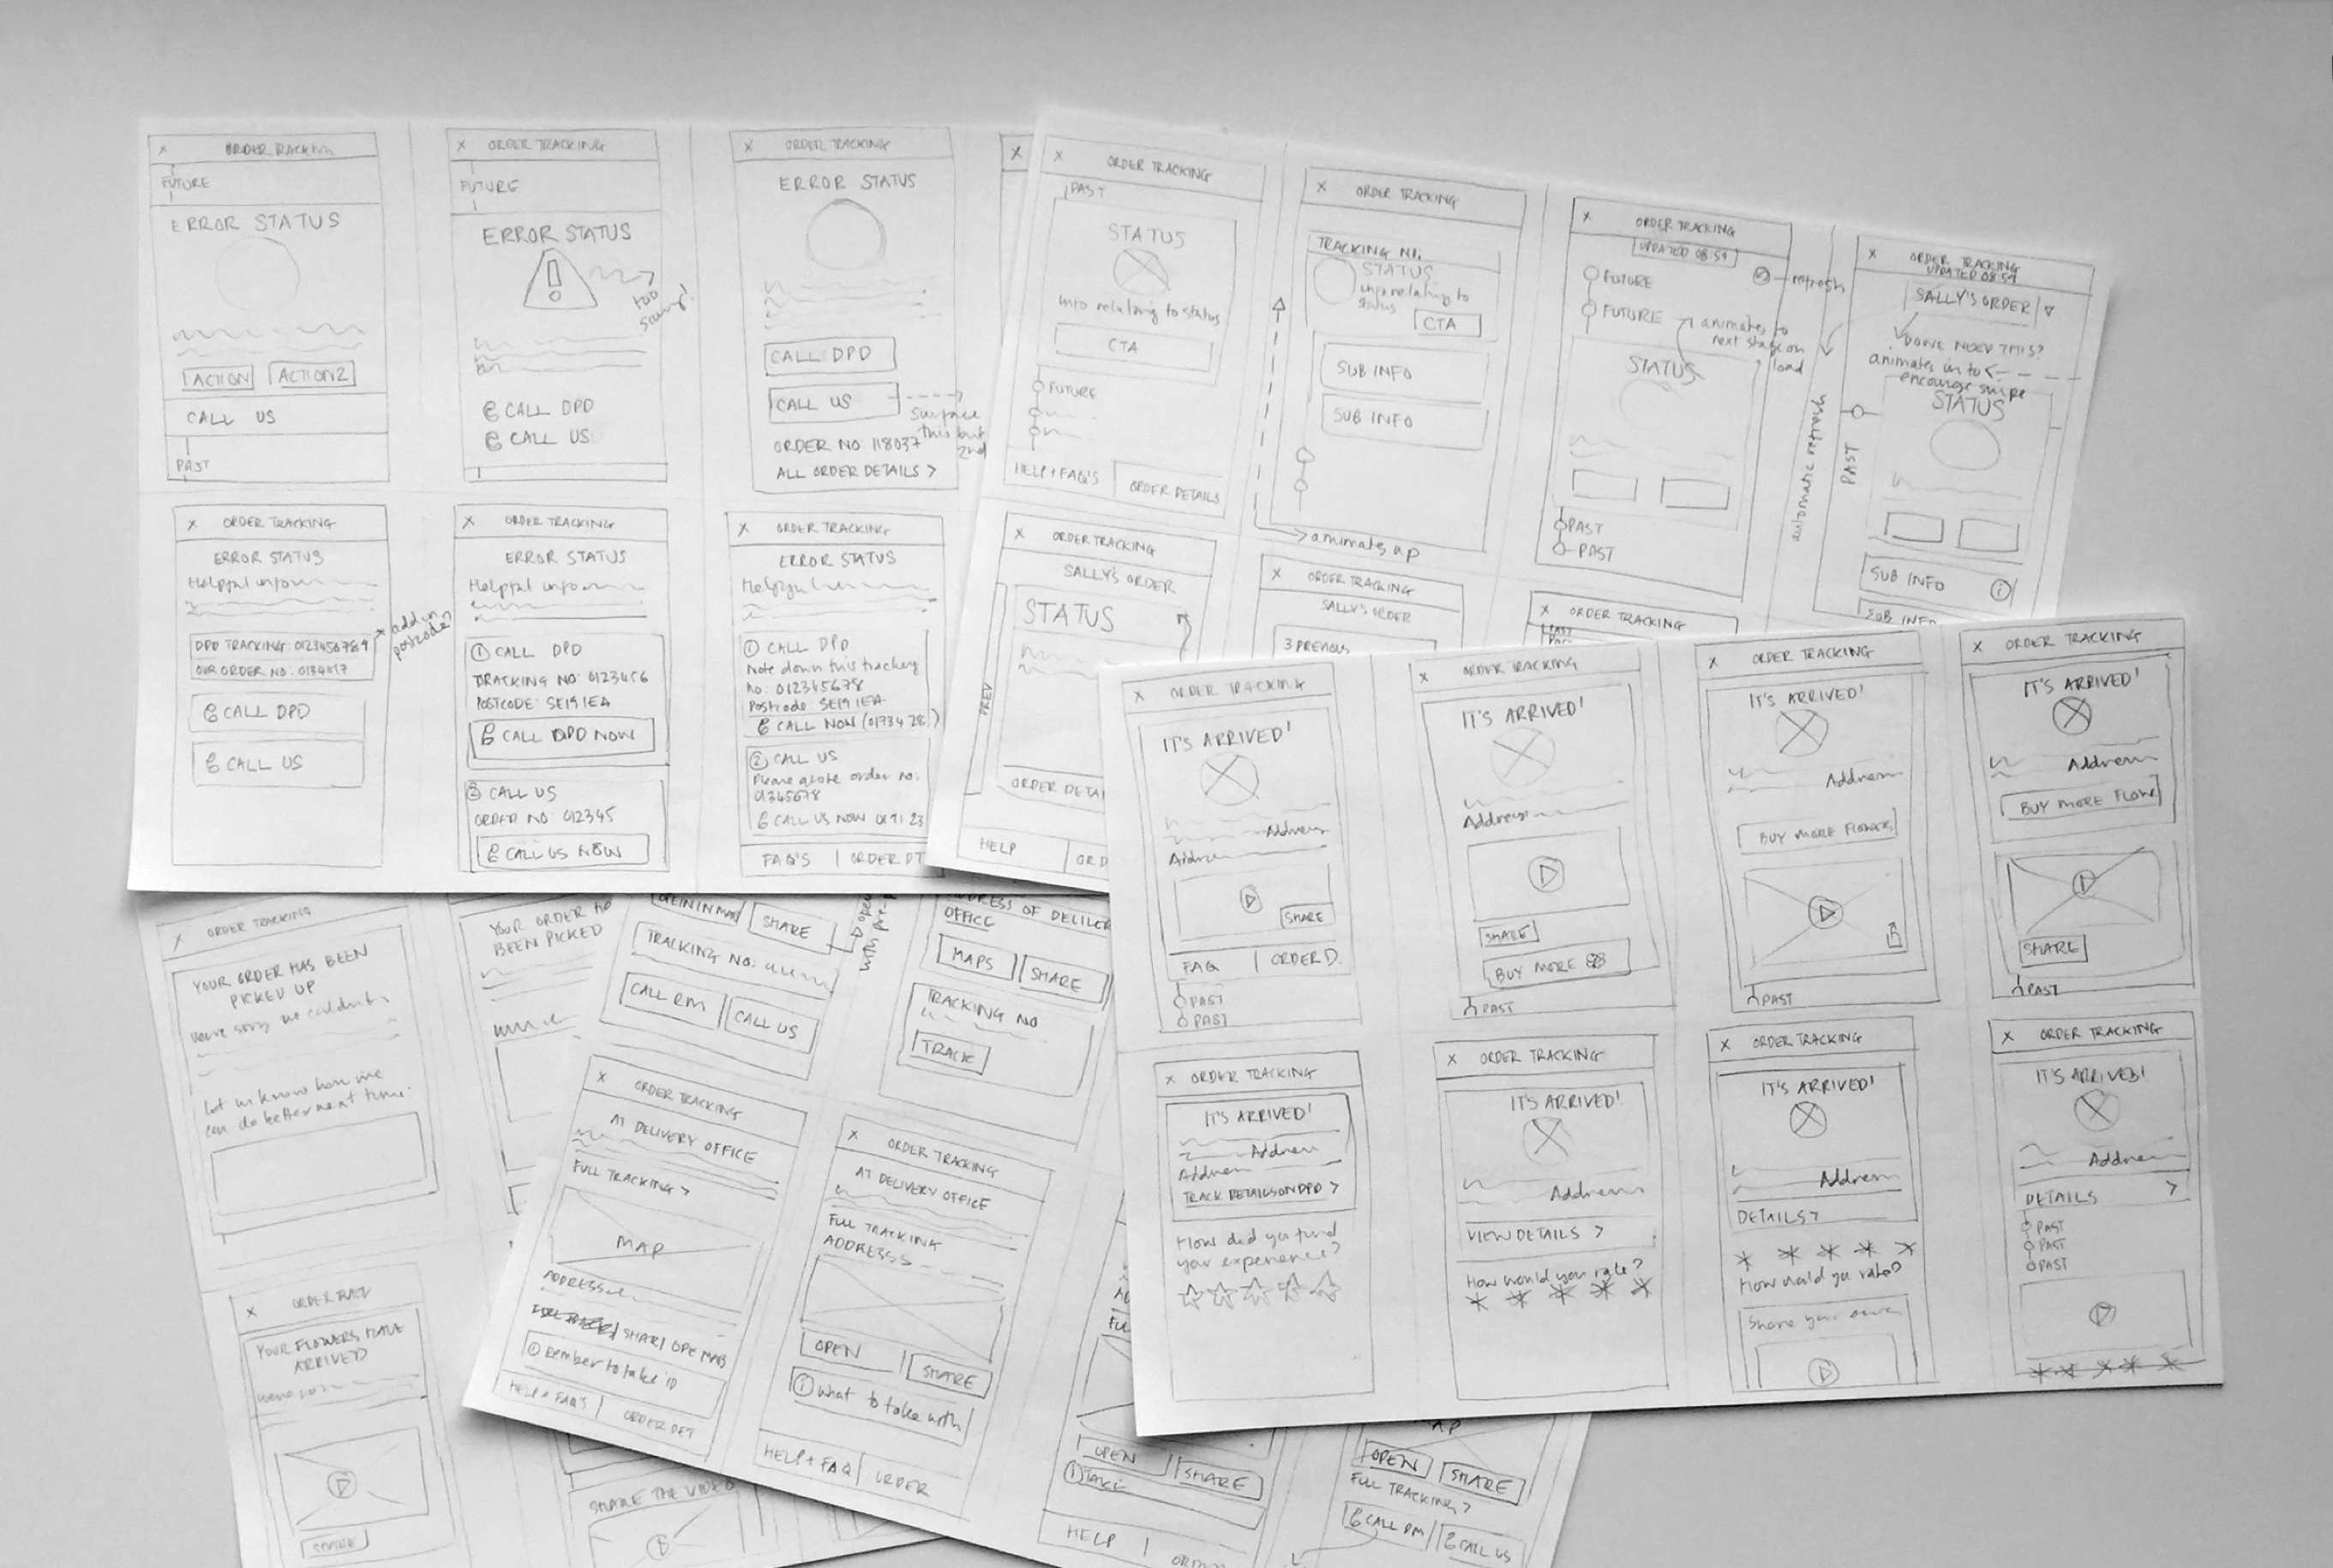 X ORDER TRACKING
FUTURE
ERROR STATUS
ACTION ACTION2
CALL US
PAST
X ORDER TRACKING
FUTURE
ERROR STATUS
!
too
scary!
CALL DPD
CALL US
X ORDER TRACKING
ERROR STATUS
CALL DPD
CALL US
surface
this but
2nd
ORDER NO: 118037
ALL ORDER DETAILS >
X
X ORDER TRACKING
ERROR STATUS
Helpful info
DPD TRACKING: 0123456789
OUR ORDER NO:
add in
postcode?
CALL DPD
CALL US
X ORDER TRACKING
ERROR STATUS
Helpful info
1 CALL DPD
TRACKING NO: 0123456
POSTCODE: SE19 1EA
CALL DPD NOW
2 CALL US
ORDER NO: 012345
CALL US NOW
X ORDER TRACKING
ERROR STATUS
Helpful
1 CALL DPD
Note down this tracking
no: 012345678
Postcode: SE19 1EA
CALL NOW (01734 28 )
2 CALL US
Please quote order no:
01345678
CALL US NOW 0171 23
FAQ'S | ORDER DT
X ORDER TRACKING
PAST
STATUS
info relating to status
CTA
FUTURE
HELP + FAQ'S ORDER DETAILS
X ORDER TRACKING
TRACKING NO.
STATUS
info relating to
status
CTA
SUB INFO
SUB INFO
animates up
X ORDER TRACKING
UPDATED 08:59
refresh
FUTURE
FUTURE
animates to
next stage on
load
STATUS
PAST
PAST
automatic refresh
X ORDER TRACKING
UPDATED 08:59
SALLY'S ORDER
DON'T NEED THIS?
animates in to
encourage swipe
STATUS
PAST
SUB INFO i
SUB INFO
X ORDER TRACKING
SALLY'S ORDER
STATUS
PREV
ORDER DETAI
HELP ORD
X ORDER TRACKING
SALLY'S ORDER
3 PREVIOUS
X ORDER TRACKING
PAST
X ORDER TRACKING
IT'S ARRIVED!
Address
Address
SHARE
FAQ | ORDER D.
PAST
PAST
X ORDER TRACKING
IT'S ARRIVED!
Address
SHARE
BUY MORE
PAST
X ORDER TRACKING
IT'S ARRIVED!
Address
BUY MORE FLOWERS
PAST
X ORDER TRACKING
IT'S ARRIVED!
Address
BUY MORE FLOWE
SHARE
PAST
X ORDER TRACKING
IT'S ARRIVED!
Address
Address
TRACK DETAILS ON DPD >
How did you find
your experience?
X ORDER TRACKING
IT'S ARRIVED!
Address
VIEW DETAILS >
How would you rate?
X ORDER TRACKING
IT'S ARRIVED!
Address
DETAILS >
How would you rate?
Share your
X ORDER TRACKING
IT'S ARRIVED!
Address
DETAILS >
PAST
PAST
PAST
X ORDER TRACKING
YOUR ORDER HAS BEEN
PICKED UP
We're sorry we couldn't
Let us know how we
can do better next time.
YOUR ORDER HA
BEEN PICKED
SHARE
TRACKING NO:
CALL RM CALL US
with pre-p
ADDRESS OF DELIVER
OFFICE
MAPS SHARE
TRACKING NO
TRACK
X ORDER TRACKING
AT DELIVERY OFFICE
FULL TRACKING >
MAP
ADDRESS
SHARE OPE MAP
i Rember to take ID
HELP + FAQ'S | ORDER DET
X ORDER TRACKING
AT DELIVERY OFFICE
FULL TRACKING
ADDRESS
OPEN SHARE
i What to take with
HELP + FAQ | ORDER
OPEN SHARE
i TAKE
HELP |
AP
OPEN SHARE
FULL TRACKING >
CALL RM CALL US
X ORDER TRACK
YOUR FLOWERS HAVE
ARRIVED
SHARE
SHARE THE VIDEO